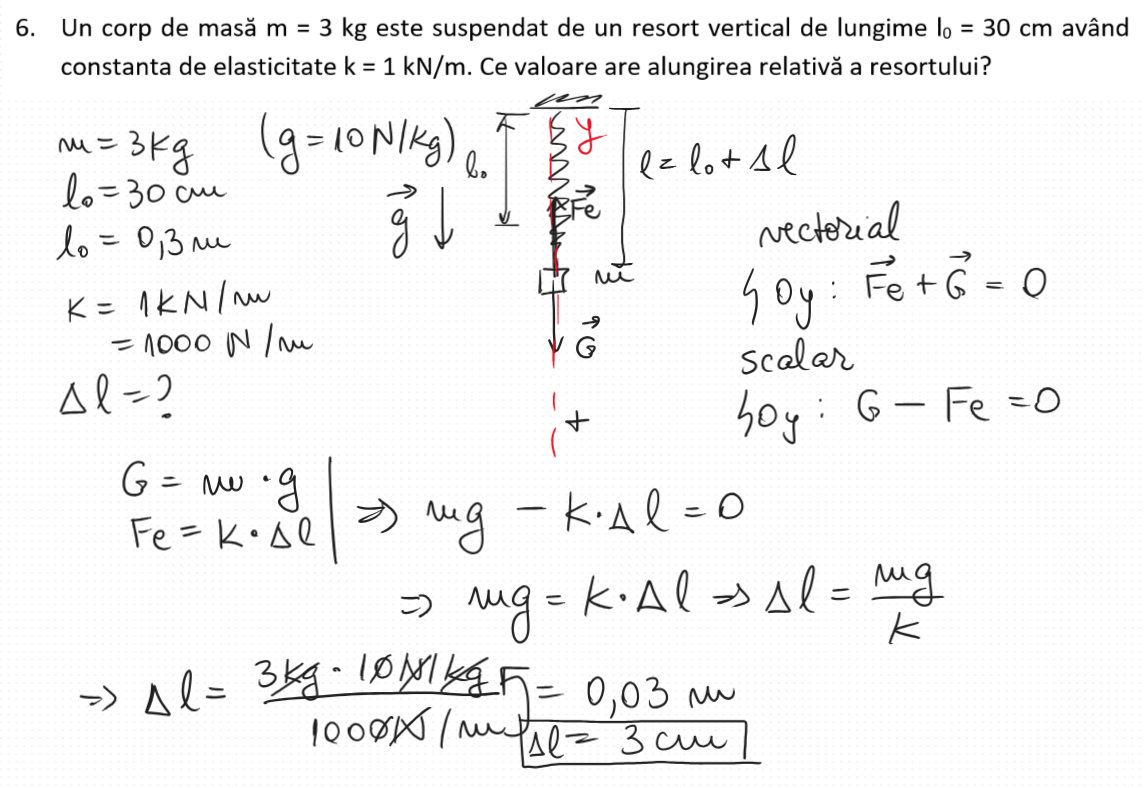 6. Un corp de masă m = 3 kg este suspendat de un resort vertical de lungime l₀ = 30 cm având
constanta de elasticitate k = 1 kN/m. Ce valoare are alungirea relativă a resortului?
m = 3kg (g = 10 N/kg)
l₀ = 30 cm
l₀ = 0,3 m
K = 1KN/m
= 1000 N/m
Δl = ?
g⃗
l₀
y
F⃗e
m
G⃗
+
l = l₀ + Δl
vectorial
Oy: F⃗e + G⃗ = 0
scalar
Oy: G – Fe = 0
G = m · g
Fe = K · Δl
⇒ mg – K·Δl = 0
⇒ mg = K·Δl ⇒ Δl = mg/K
⇒ Δl = 3kg · 10N/kg / 1000N/m = 0,03 m
Δl = 3 cm